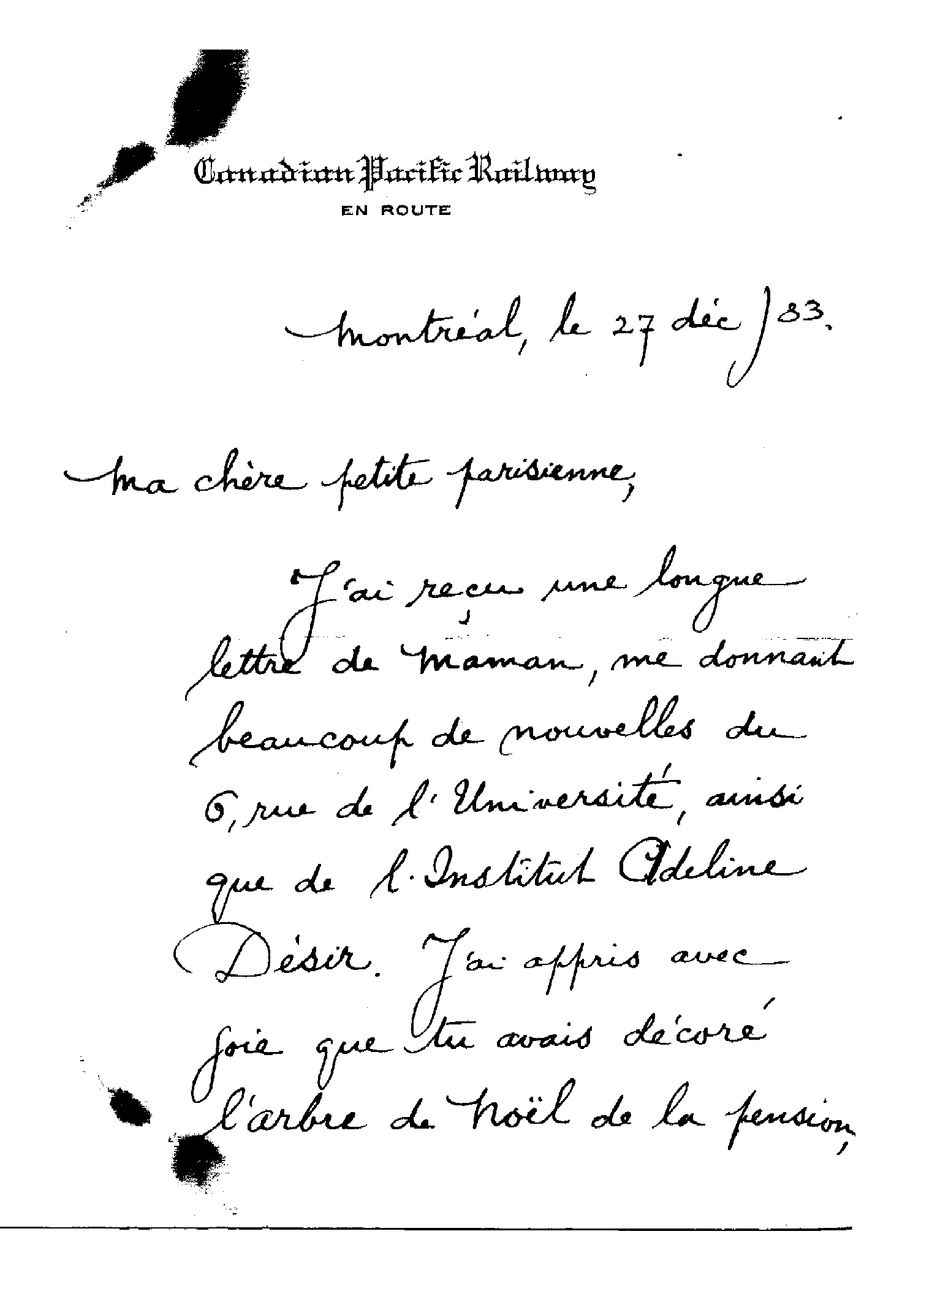 Canadian Pacific Railway
EN ROUTE
Montréal, le 27 déc / 33.
Ma chère petite parisienne,
J'ai reçu une longue
lettre de Maman, me donnant
beaucoup de nouvelles du
6, rue de l'Université, ainsi
que de l'Institut Adeline
Désir. J'ai appris avec
joie que tu avais décoré
l'arbre de Noël de la pension,